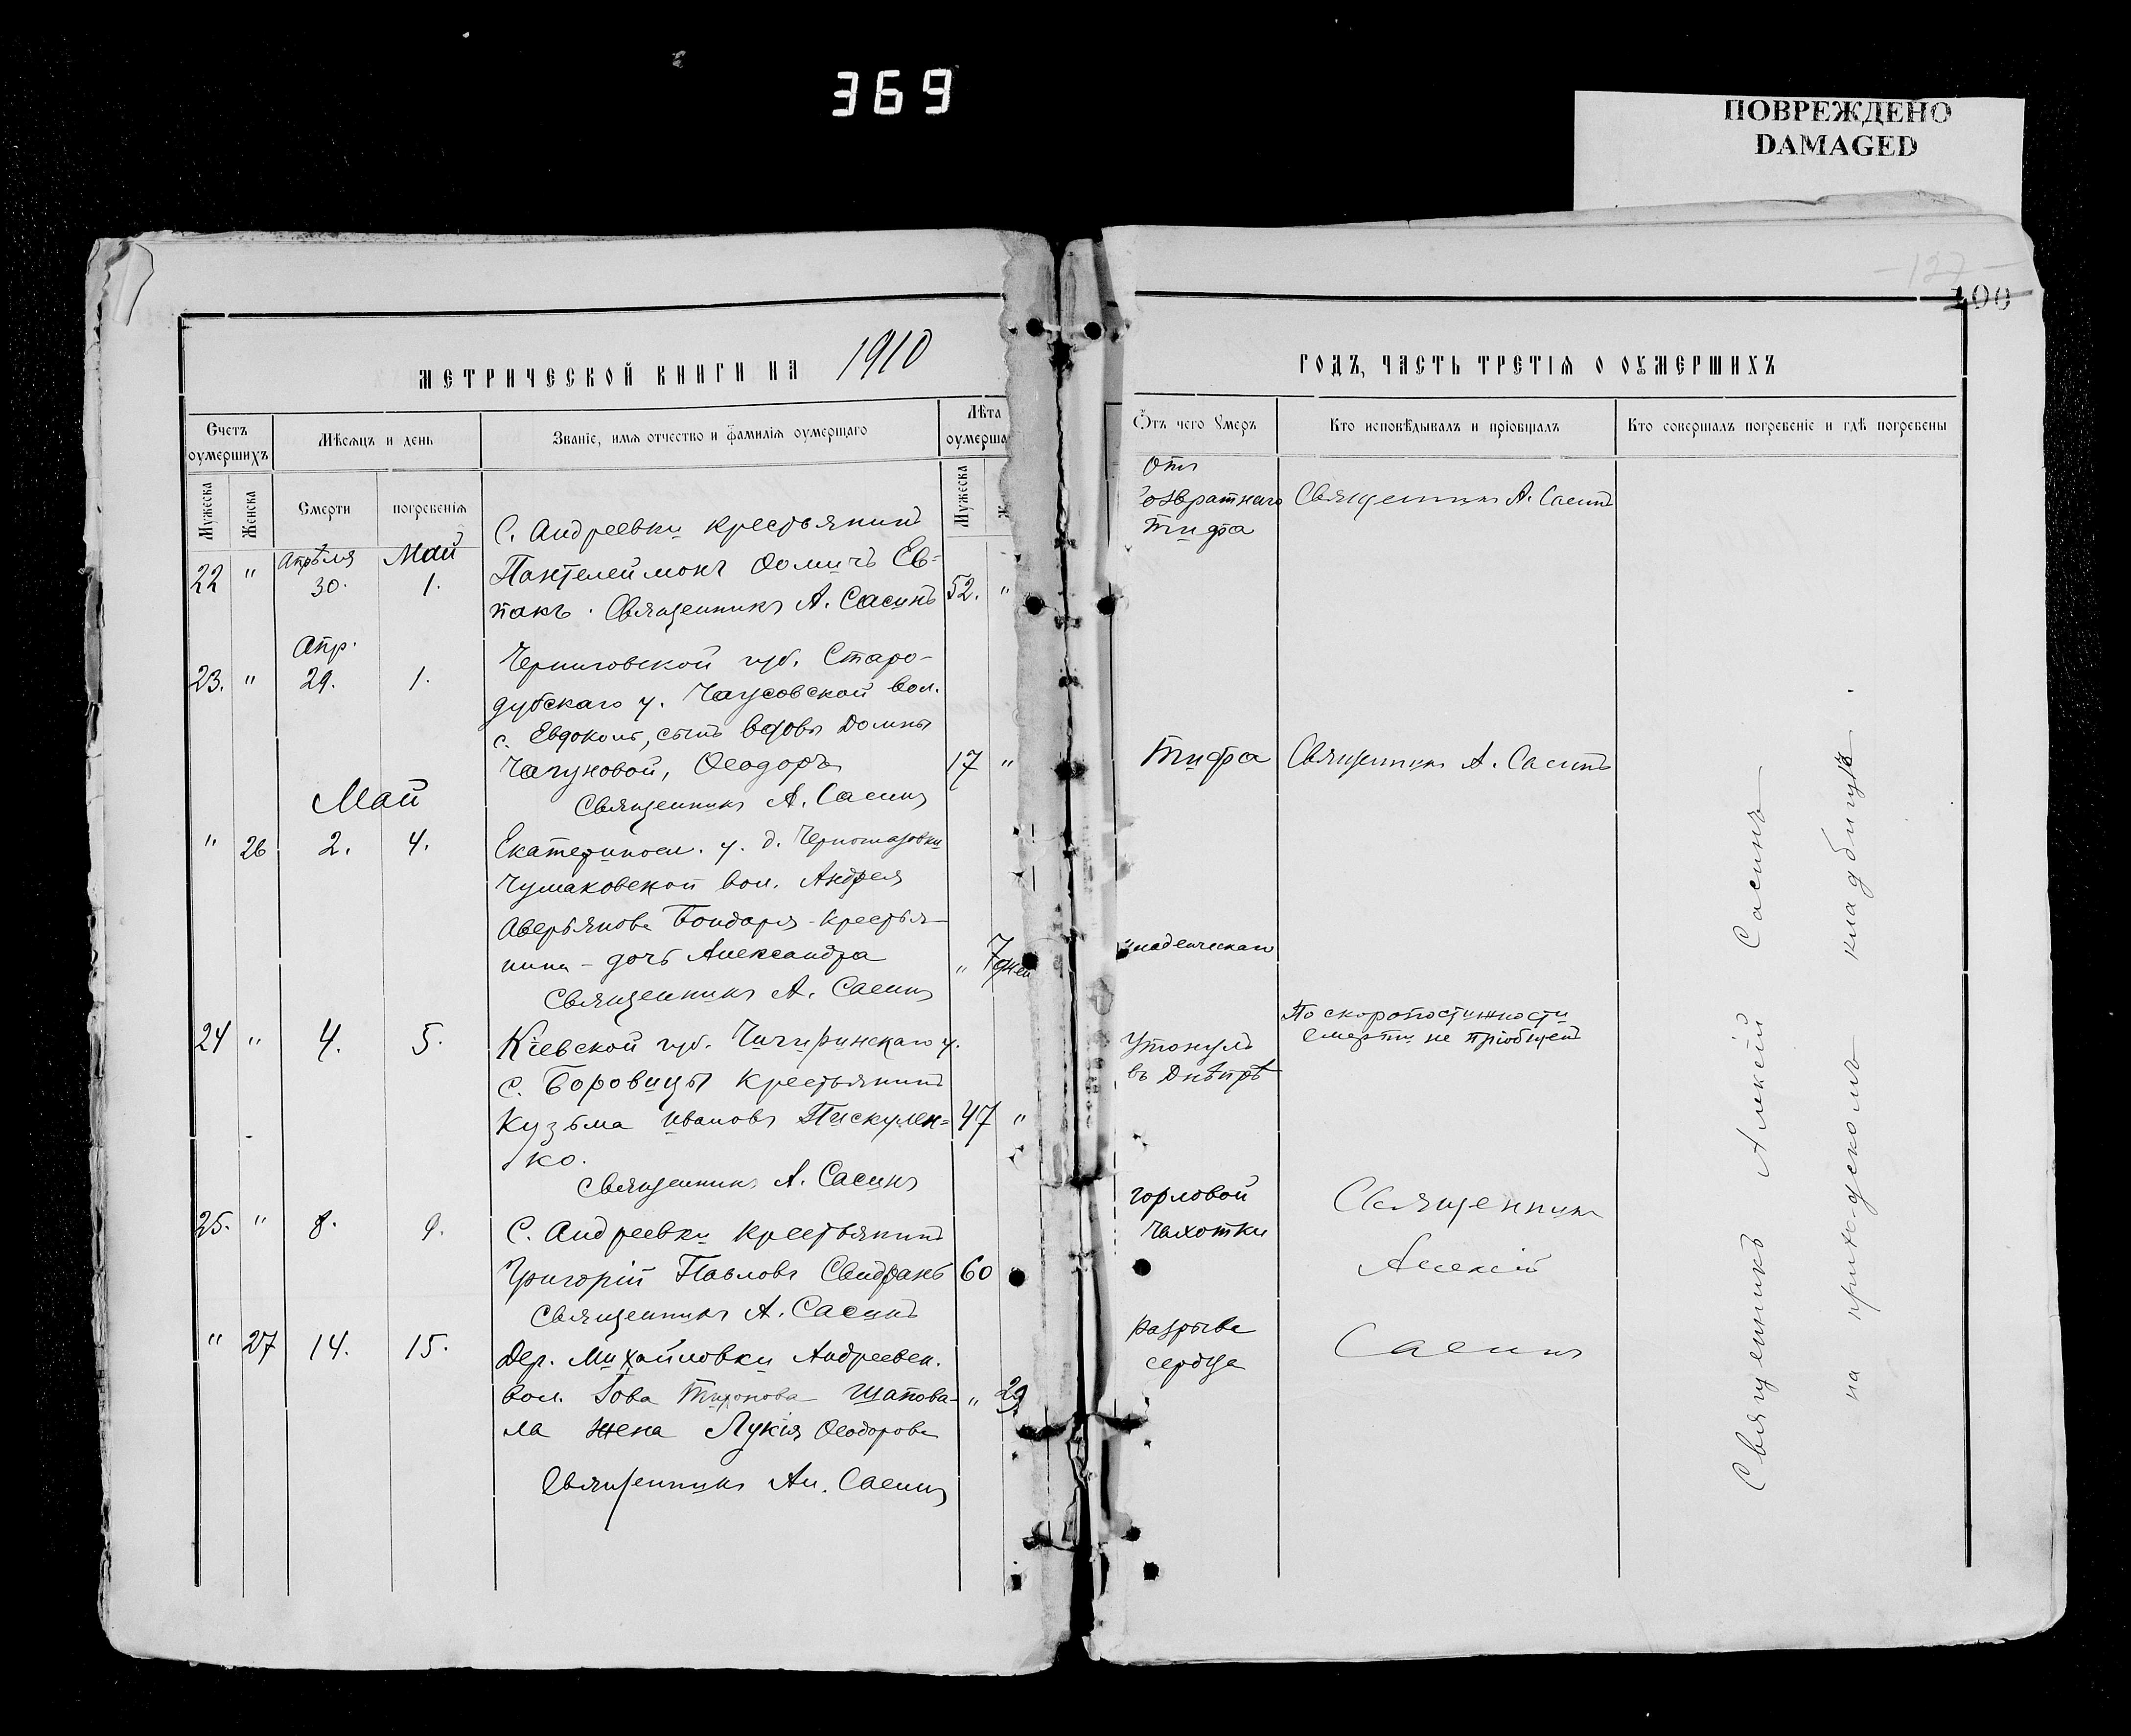 369
ПОВРЕЖДЕНО
DAMAGED
127
100
МЕТРИЧЕСКОЙ КНИГИ НА 1910
Счетъ оумершихъ
Мѣсяцъ и день
Званіе, имя отчество и фамилія оумершаго
Лѣта оумерша
Мужеска
Женска
Смерти
погребенія
Мужеска
22 " Апрѣля 30. Май 1.
С. Андреевки крестьянинъ
Пантелеймонъ Ѳомичъ Ев-
такъ. Священникъ А. Сасинъ 52. "
23. " Апр. 29. 1.
Черниговской губ. Старо-
дубскаго у. Чаусовской вол.
с. Евдоколь, сынъ вдовы Домны
Чагуновой, Ѳеодоръ 17 "
Священникъ А. Сасинъ
Май
" 26 2. 4.
Екатериносл. у. д. Черноглазовки
Чумаковской вол. Андрея
Аверьянова Бондаря крестья-
нина - дочь Александра " 7 дней
Священникъ А. Сасинъ
24 " 4. 5.
Кіевской губ. Чигиринскаго у.
с. Боровицы крестьянинъ
Кузьма Ивановъ Пискулен= 47 "
ко.
Священникъ А. Сасинъ
25. " 8. 9.
С. Андреевки крестьянинъ
Григорій Павловъ Свидракъ 60
Священникъ А. Сасинъ
" 27 14. 15.
Дер. Михайловки Андреевск.
вол. Іова Тихонова Шапова- " 29
ла жена Лукія Ѳеодорова
Священникъ Ал. Сасинъ
ГОДЪ, ЧАСТЬ ТРЕТІЯ О ОУМЕРШИХЪ
Отъ чего Умеръ
Кто исповѣдывалъ и пріобщалъ
Кто совершалъ погребеніе и гдѣ погребены
Отъ
озвратнаго Священникъ А. Сасинъ
тифа
Тифа Священникъ А. Сасинъ
младенческаго
Утонулъ
въ Днѣпрѣ
По скоропостижности
смерти не пріобщенъ
горловой
чахотки
Священникъ
Алексій
Сасинъ
Разрыва
сердца
Священникъ Алексій Сасинъ
на приходскомъ кладбищѣ.